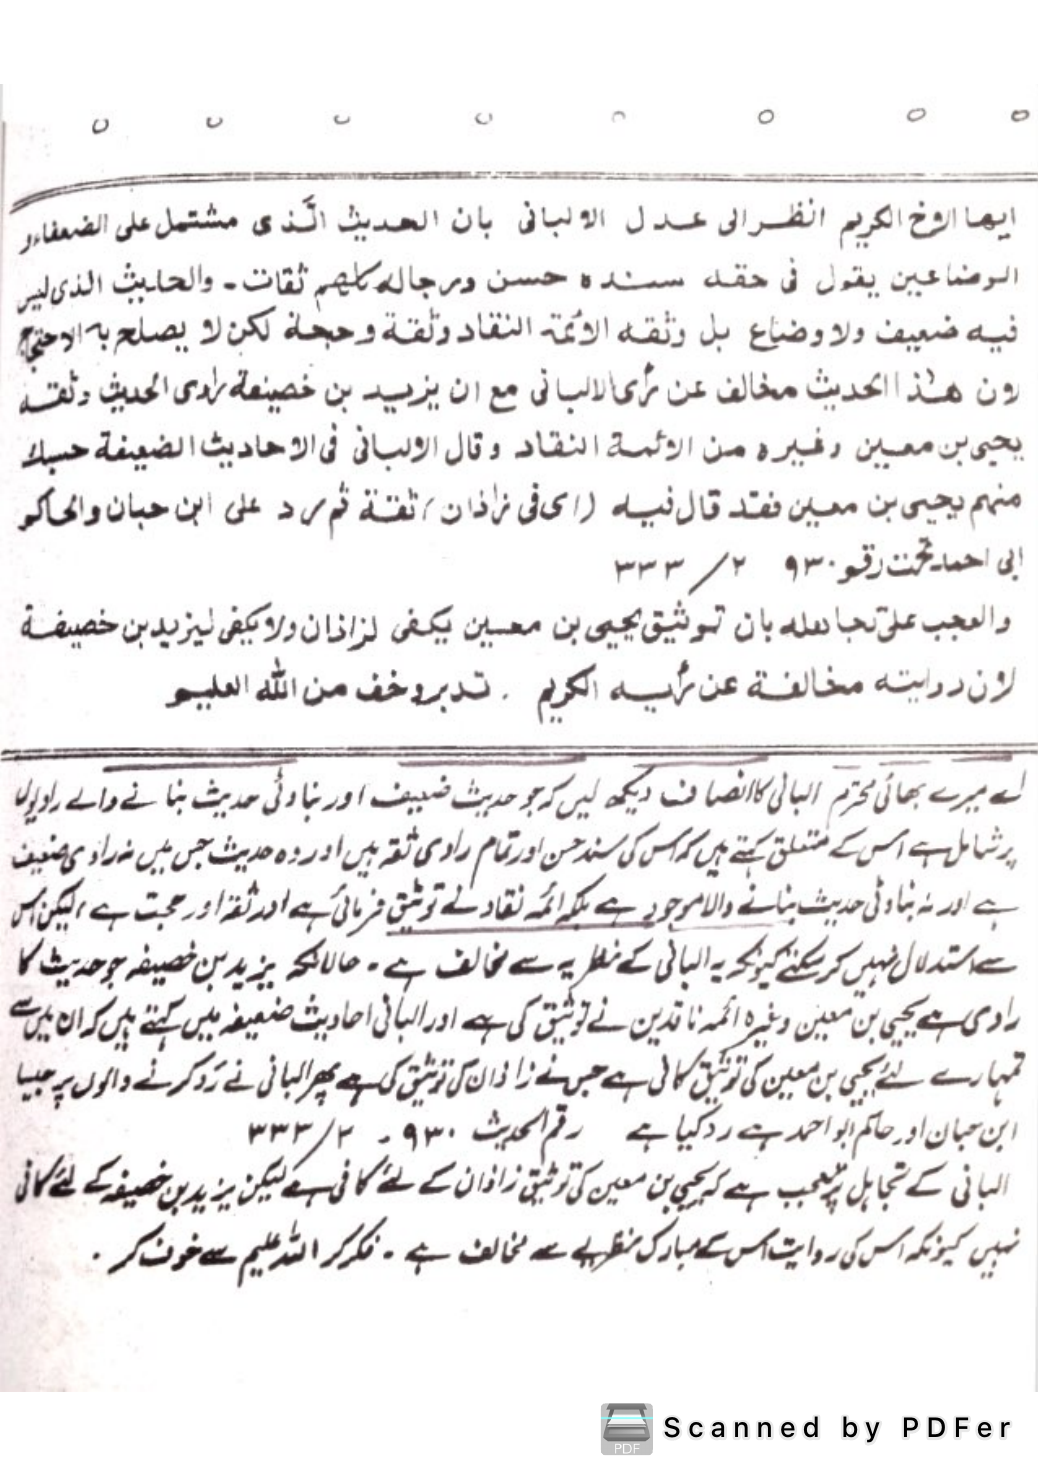 ايها الاخ الكريم انظر الى عدل الالبانى بان الحديث الّذى مشتمل على الضعفاء و
الوضاعين يقول فى حقه سنده حسن ورجاله كلهم ثقات ۔ والحديث الذى ليس
فيه ضعيف ولا وضاع بل وثقه الائمة النقاد وثقة وحجة لكن لا يصلح به الاحتجاج
لان هذا الحديث مخالف عن رأى الالبانى مع ان يزيد بن خصيفة راوى الحديث وثقه
يحيى بن معين وغيره من الائمة النقاد وقال الالبانى فى الاحاديث الضعيفة حسبك
منهم يحيى بن معين فقد قال فيه (اى فى زاذان) ثقة ثم رد على ابن حبان والحاكم
ابى احمد تحت رقم ۹۳۰ ۲/ ۳۳۳
والعجب على تجاهله بان توثيق يحيى بن معين يكفى لزاذان ولا يكفى ليزيد بن خصيفة
لان روايته مخالفة عن رأيه الكريم . تدبر وخف من الله العليم
اے میرے بھائی محترم البانی کا انصاف دیکھ لیں کہ جو حدیث ضعیف اور بناوٹی حدیث بنانے والے راویوں
پر شامل ہے اس کے متعلق کہتے ہیں کہ اس کی سند حسن اور تمام راوی ثقہ ہیں اور وہ حدیث جس میں نہ راوی ضعیف
ہے اور نہ بناوٹی حدیث بنانے والا موجود ہے بلکہ ائمہ نقاد نے توثیق فرمائی ہے اور ثقہ اور حجت ہے، لیکن اس
سے استدلال نہیں کر سکتے کیونکہ یہ البانی کے نظریہ سے مخالف ہے ۔ حالانکہ یزید بن خصیفہ جو حدیث کا
راوی ہے یحیی بن معین وغیرہ ائمہ ناقدین نے توثیق کی ہے اور البانی احادیث ضعیفہ میں کہتے ہیں کہ ان میں سے
تمہارے لئے یحیی بن معین کی توثیق کافی ہے جس نے زاذان کی توثیق کی ہے پھر البانی نے رد کرنے والوں پر جیسا
ابن حبان اور حاکم ابو احمد ہے رد کیا ہے رقم الحدیث ۹۳۰ ۔ ۲/ ۳۳۳
البانی کے تجاہل پر تعجب ہے کہ یحیی بن معین کی توثیق زاذان کے لئے کافی ہے لیکن یزید بن خصیفہ کے لئے کافی
نہیں کیونکہ اس کی روایت اس کے مبارک نظریے سے مخالف ہے ۔ فکر کر اللہ علیم سے خوف کر .
PDF
Scanned by PDFer